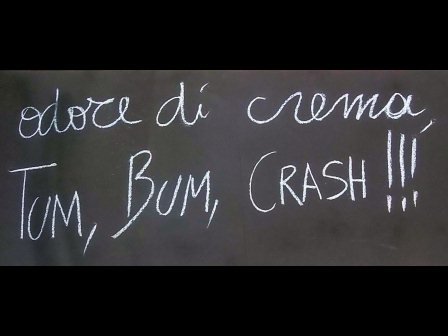 odore di crema,
TUM, BUM, CRASH !!!